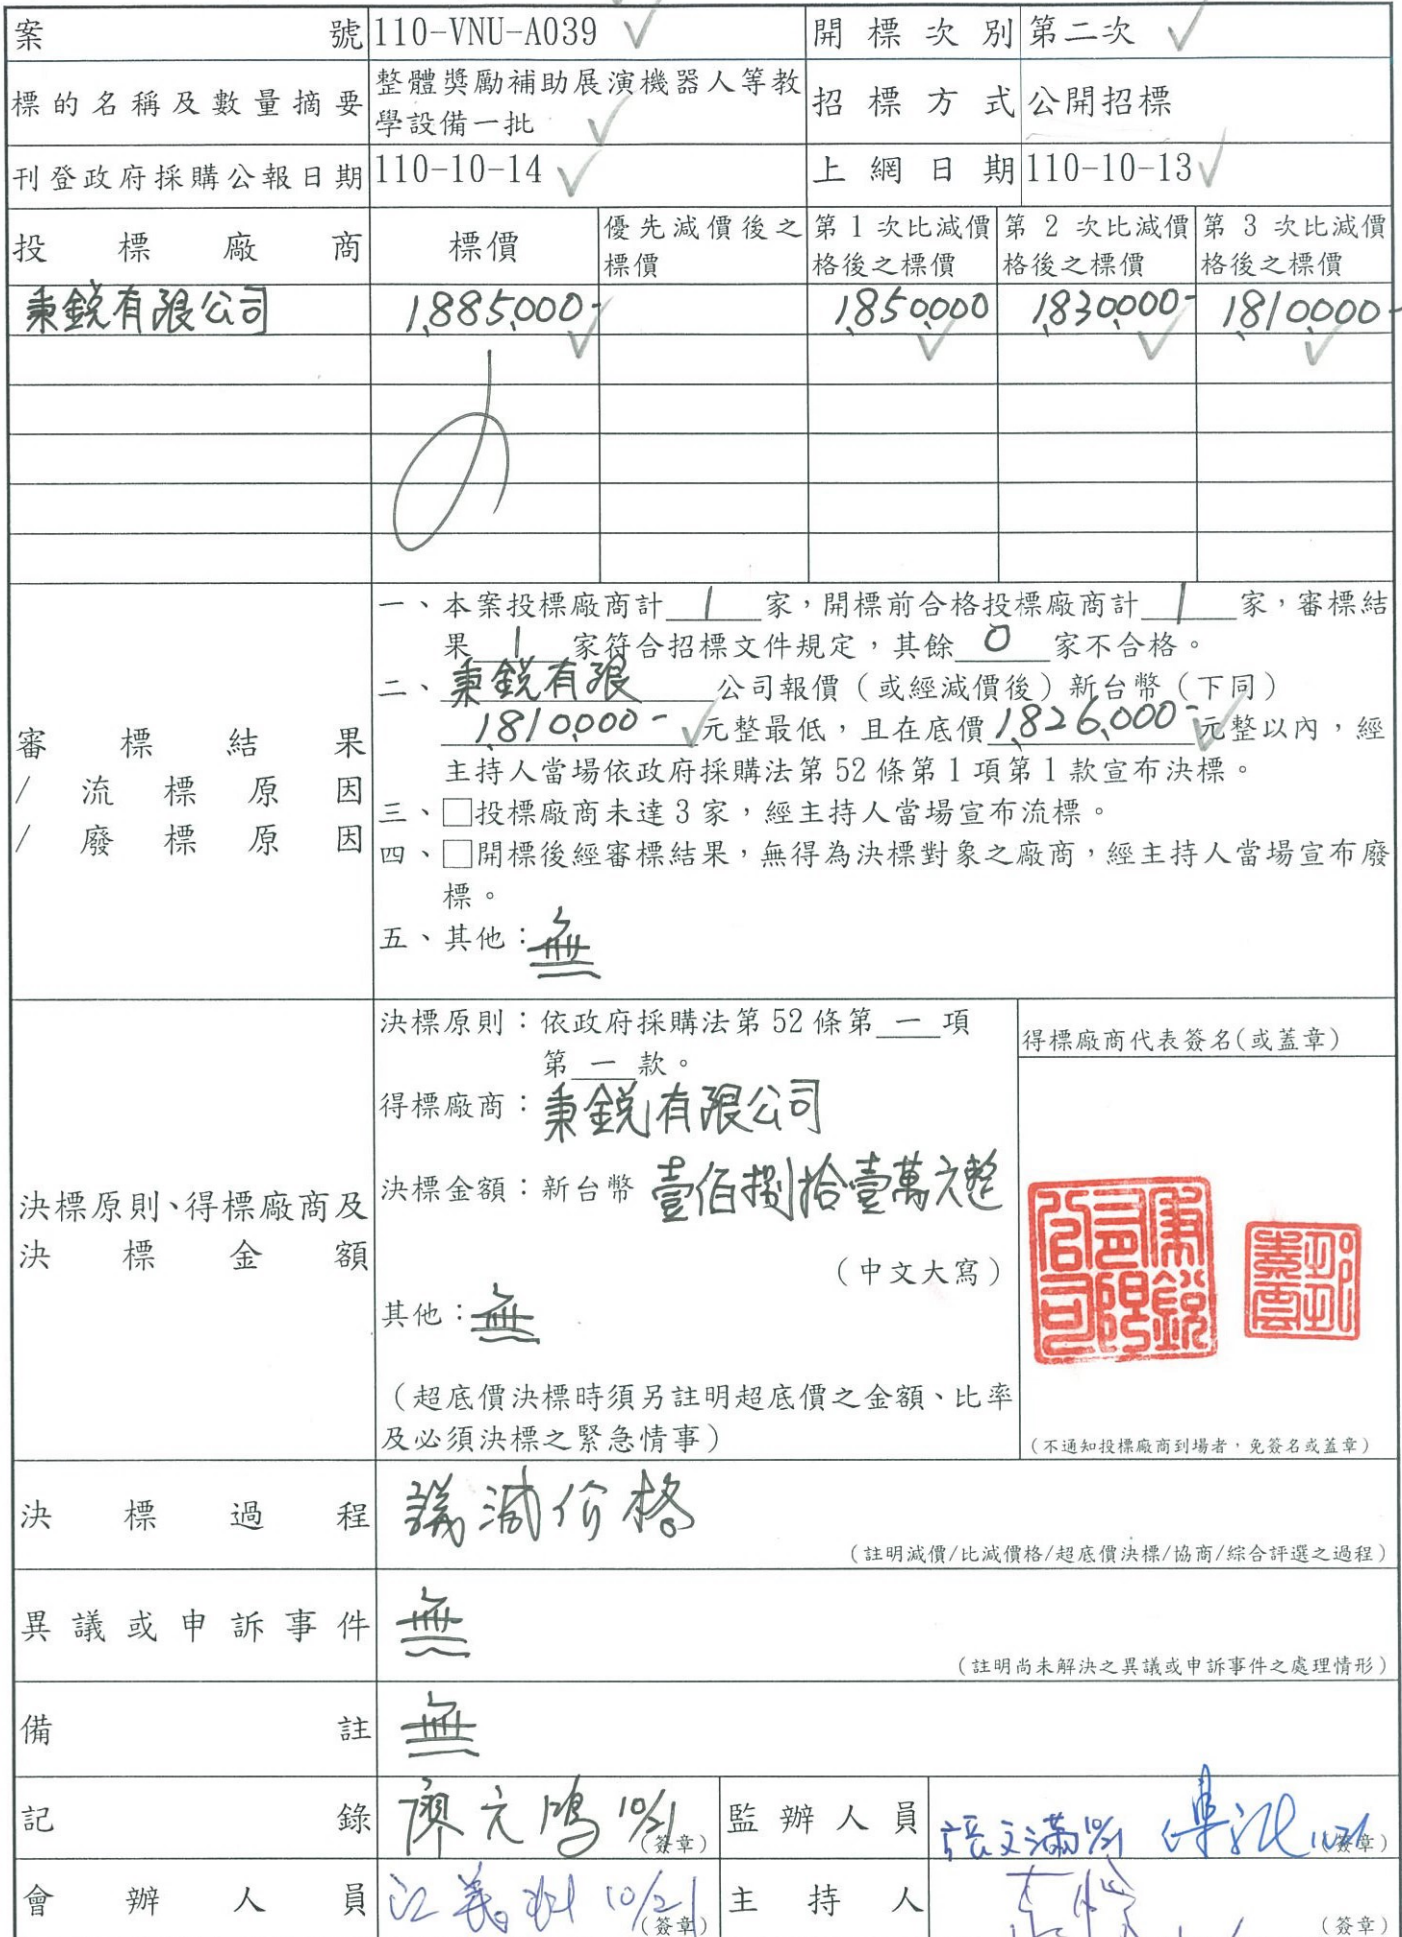 案號 110-VNU-A039 開標次別 第二次
標的名稱及數量摘要 整體獎勵補助展演機器人等教
學設備一批 招標方式 公開招標
刊登政府採購公報日期 110-10-14 上網日期 110-10-13
投標廠商 標價 優先減價後之
標價 第1次比減價
格後之標價 第2次比減價
格後之標價 第3次比減價
格後之標價
秉銳有限公司 1,885,000- 1,850,000 1,830,000- 1,810,000-
審標結果
/流標原因
/廢標原因
一、本案投標廠商計 1 家,開標前合格投標廠商計 1 家,審標結
果 1 家符合招標文件規定,其餘 0 家不合格。
二、秉銳有限 公司報價(或經減價後)新台幣(下同)
1,810,000- 元整最低,且在底價 1,826,000- 元整以內,經
主持人當場依政府採購法第52條第1項第1款宣布決標。
三、□投標廠商未達3家,經主持人當場宣布流標。
四、□開標後經審標結果,無得為決標對象之廠商,經主持人當場宣布廢
標。
五、其他:無
決標原則、得標廠商及
決標金額
決標原則:依政府採購法第52條第 一 項
第 一 款。
得標廠商:秉銳有限公司
決標金額:新台幣 壹佰捌拾壹萬元整
(中文大寫)
其他:無
(超底價決標時須另註明超底價之金額、比率
及必須決標之緊急情事)
得標廠商代表簽名(或蓋章)
秉銳有限公司
(不通知投標廠商到場者,免簽名或蓋章)
決標過程 議減价格
(註明減價/比減價格/超底價決標/協商/綜合評選之過程)
異議或申訴事件 無
(註明尚未解決之異議或申訴事件之處理情形)
備註 無
記錄 廖元鴻 10/21 (簽章) 監辦人員 張文滿 10/21 (簽章)
會辦人員 江義 10/21 (簽章) 主持人 (簽章)